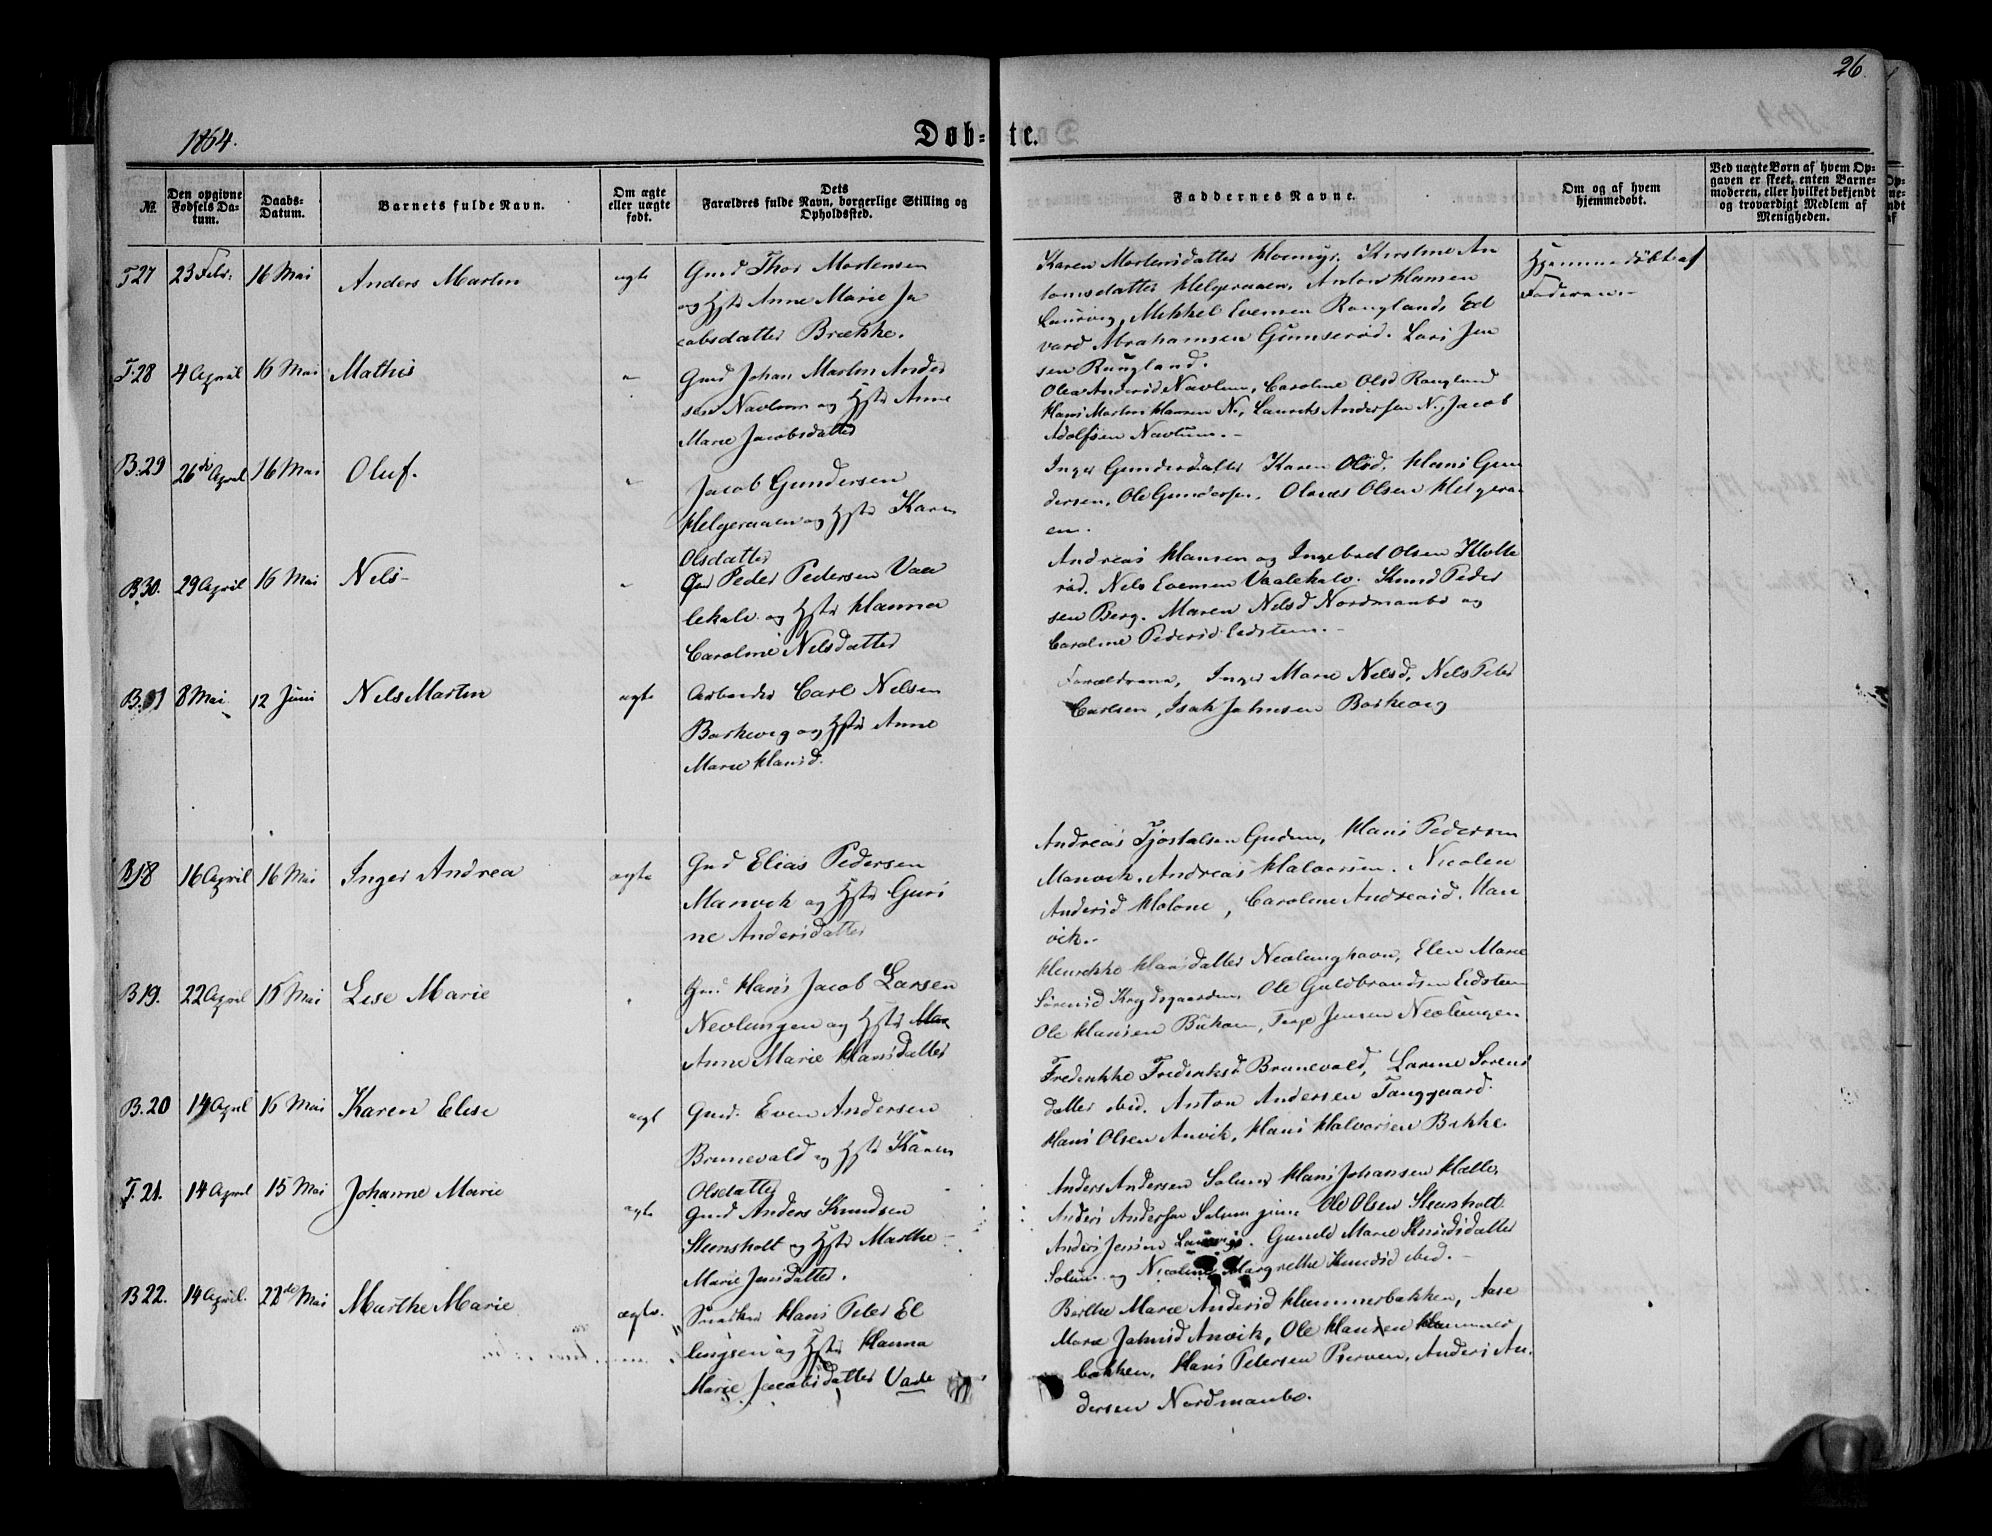 26.
1864.
Døb- te.
№
Den opgivne Fødsels Datum.
Daabs-Datum.
Barnets fulde Navn.
Om ægte eller uægte født.
Dets Forældres fulde Navn, borgerlige Stilling og Opholdsted.
Faddernes Navne.
Om og af hvem hjemmedøbt.
Ved uægte Børn af hvem Opgaven er skeet, enten Barnemoderen, eller hvilket bekjendt og troværdigt Medlem af Menigheden.
T27 23 Febr: 16 Mai Anders Martin ægte
Gmd Thor Mortensen
og Hstr Anne Marie Ja
cobsdatter Brække.
Karen Mortensdatter Kirstine An
tonsdatter Helgeraaen, Anton Hansen
Laurvig, Mikkel Evensen Rougland, Ed
vard Abrahamsen Gumserød. Lars Jen
sen Rougland.
Hjemmedøbt af
Faderen.-
T.28 4 April 16 Mai Mathis "
Gmd Johan Martin Ander
sen Navlum og Hstr Anne
Marie Jacobsdatter
Olea Andersd Navlum, Caroline Olsd Rougland
Hans Martin Hansen N., Laurits Andersen N., Jacob
Adolfsen Navlum.-
B.29 26de April 16 Mai Oluf. "
Jacob Gundersen
Helgeraaen og Hstr Karen
Olsdatter
Inger Gundersdatter Karen Olsd. Hans Gun
dersen, Ole Gundersen, Olaves Olsen Helgeraa
en.
B.30. 29 April 16 Mai Nels- "
Gmd Peder Pedersen Vaa
lekalv. og Hstr Hanna
Caroline Nelsdatter
Andreas Hansen og Ingebod Olsen Klotte
rød. Nels Evensen Vaalekalv. Knud Peder
sen Berg. Maren Nelsd Nordmanbø og
Caroline Pedersd Eidsten.-
B.31 8 Mai 12 Juni Nels Martin ægte
Arbeider Carl Nelsen
Barkevig og Hstr Anne
Marie Hansd.
Forældrene, Inger Marie Nelsd, Nels Peter
Carlsen, Isak Jahnsen Barkevig
B18 16 April 16 Mai Inger Andrea ægte
Gmd Elias Pedersen
Manvik og Hstr Guri
ne Andersdatter
Andreas Tjostalsen Gudem, Hans Pedersen
Manvik, Andreas Halvorsen. Nicolea
Andersd Holane, Caroline Andreasd. Man
vik.-
B19. 22 April 16 Mai Lise Marie "
Gmd Hans Jacob Larsen
Nevlungen og Hstr Mar
Anne Marie Hansdatter
Henrikke Hansdatter Nevlunghavn, Elen Marie
Sørensd Krydsgaarden, Ole Guldbrandsen Eidsten
Ole Hansen Jensen Nevlungen
B.20 14 April 16 Mai Karen Elise ægte
Gmd. Even Andersen
Brunevald og Hstr Karen
Olsdatter
Frederikke Frederiksd Brunevald, Larine Sørens
datter ibid. Anton Andersen Fanggaard.
Hans Olsen Anvik, Hans Halvorsen Bække
T.21. 14 April 15 Mai Johanne Marie ægte
Gmd Anders Knudsen
Stensholt og Hstr Marthe
Marie Jensdatter.
Anders Andersen Solum, Hans Johansen Halle,
Anders Andersen Solum jun. Ole Olsen Stensholt.
Anders Jensen Laurvig. Gunild Marie Knudsdatter
Solum og Nicoline Margrethe Knudsd ibid.-
B22. 14 April. 22de Mai Marthe Marie ægte.
Hans Peter El
lingsen og Hstr Hanna
Marie Jacobsdatter Vade
Berthe Marie Andersd Hummerbakken, Aase
Marie Jahnsd Anvik, Ole Hansen Hummer
bakken, Hans Petersen Anders An
dersen Nordmanbø.